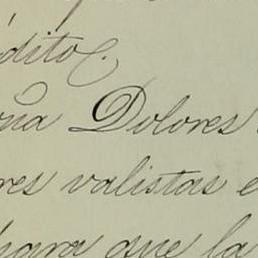 édito.
oña Dolores
res valistas e
para que la